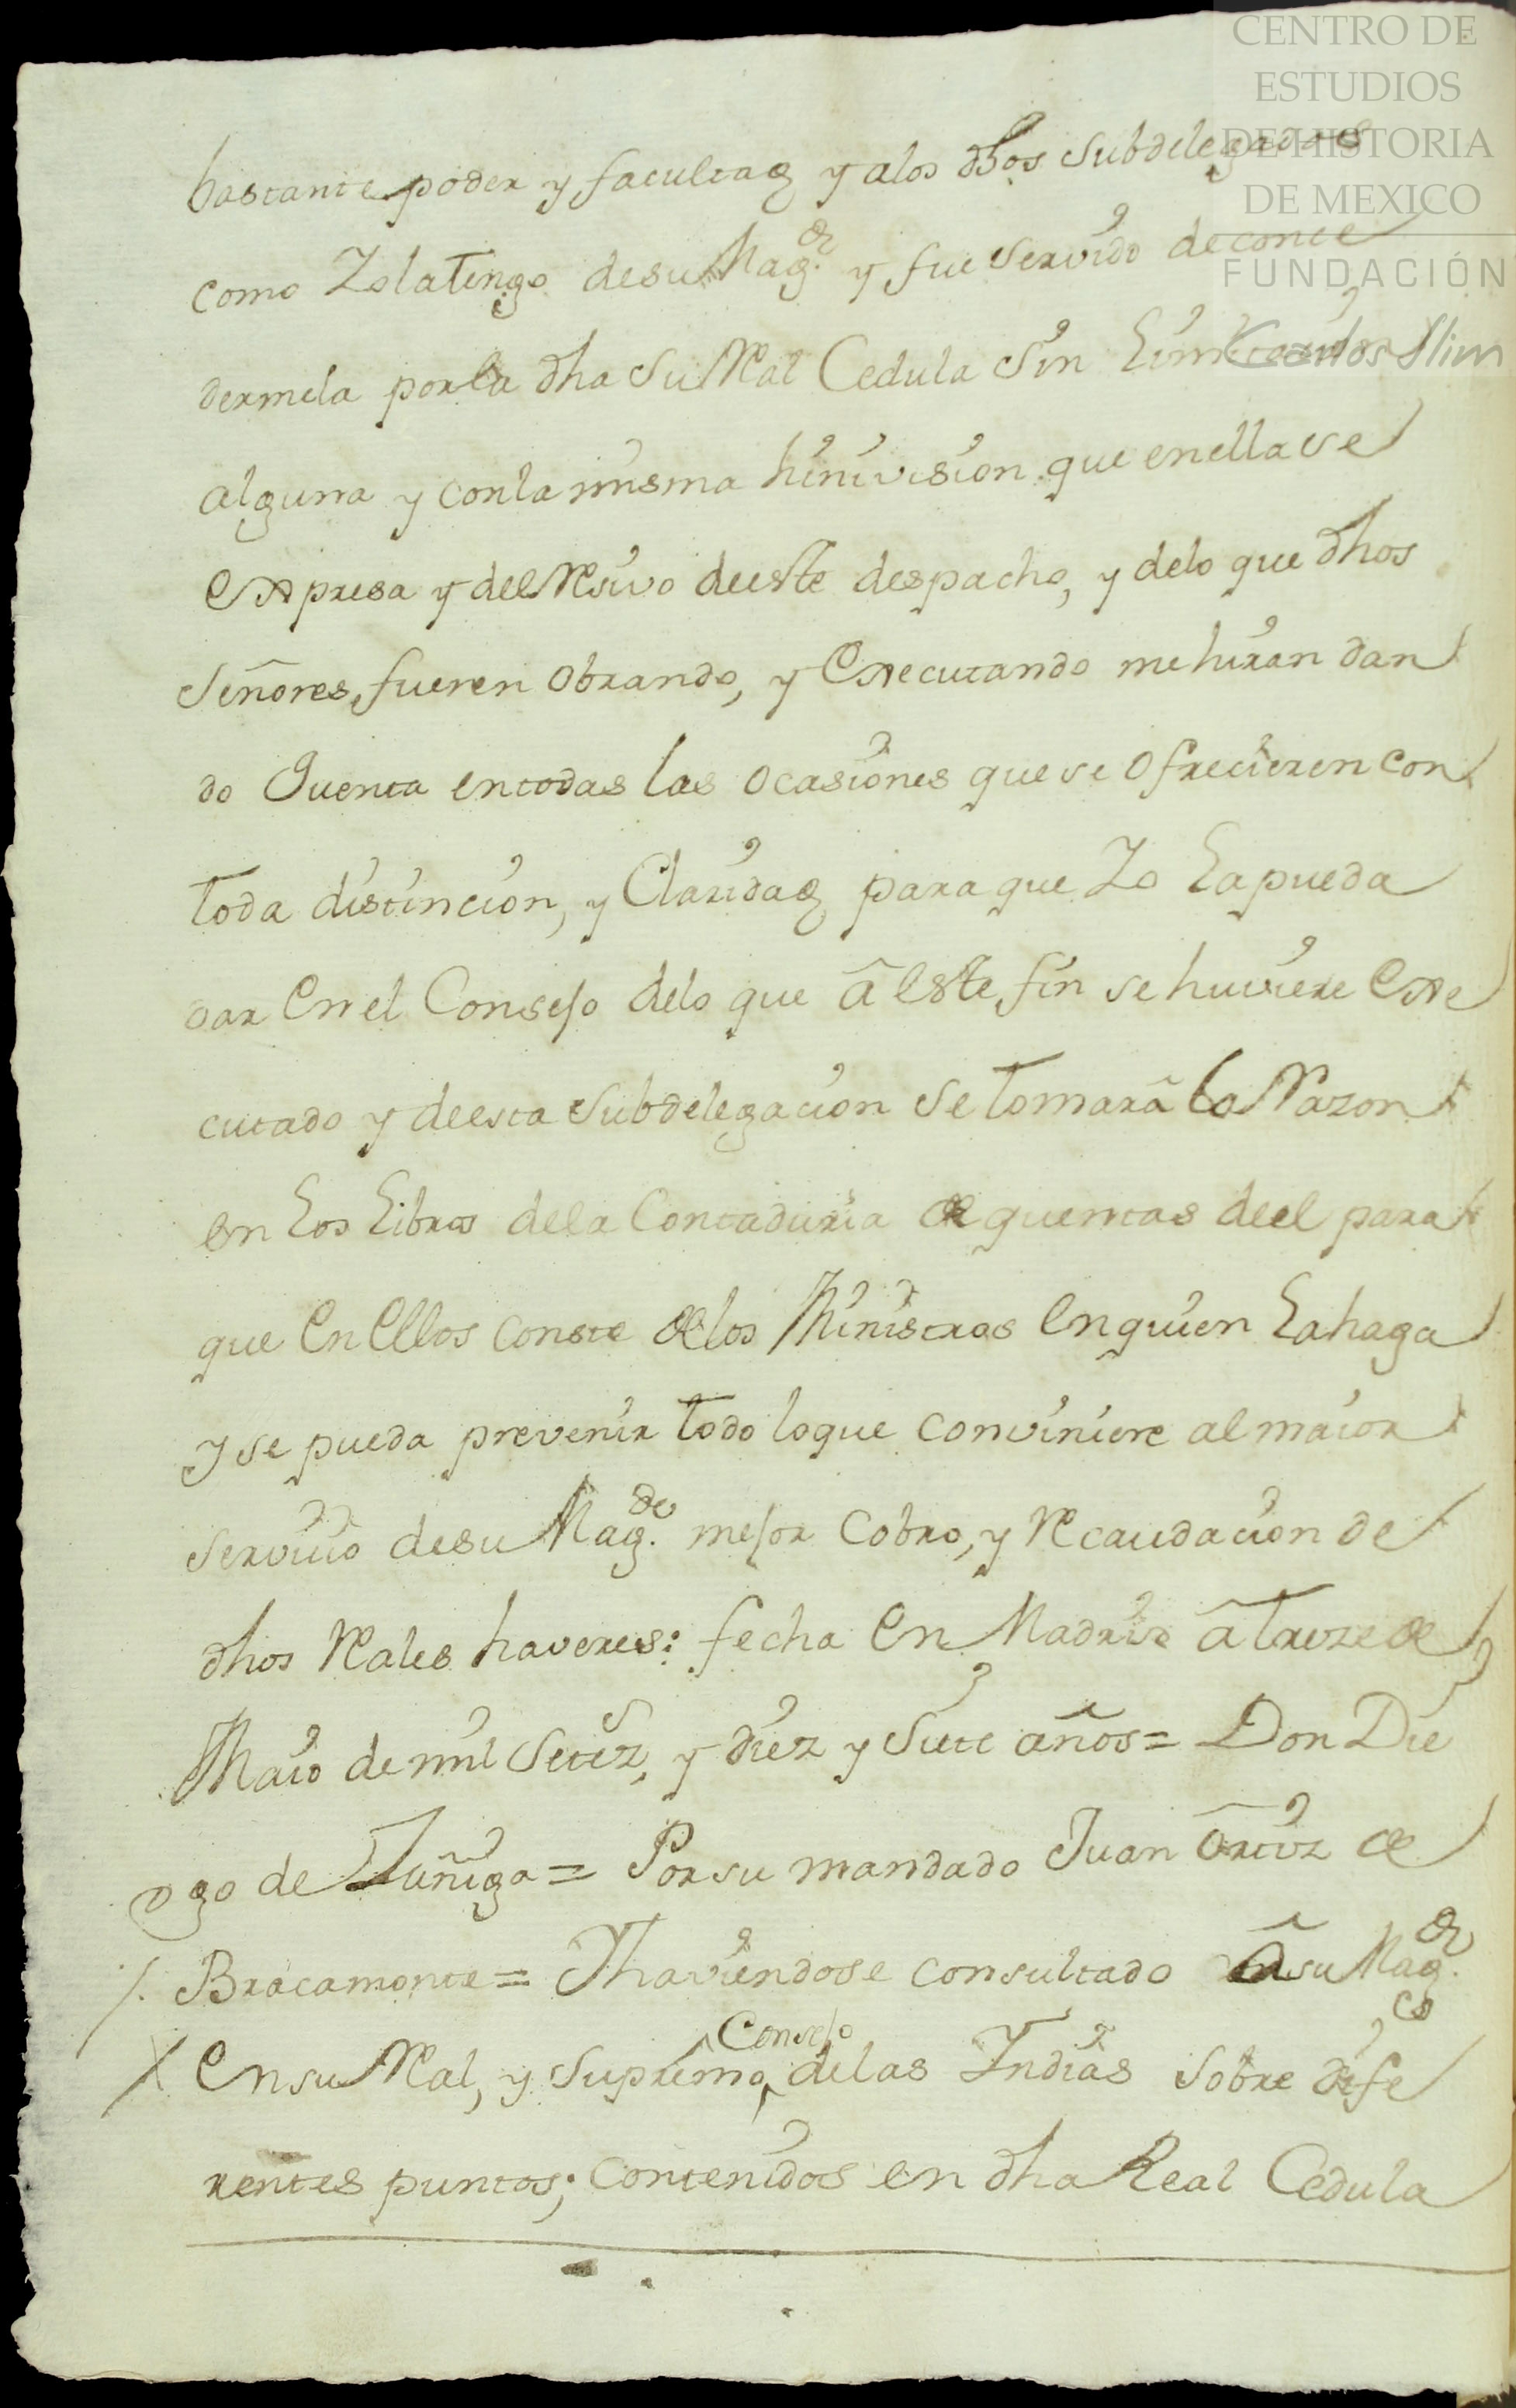 CENTRO DE
ESTUDIOS
DE HISTORIA
DE MEXICO
FUNDACIÓN
Carlos Slim
bastante poder y facultad y alos dhos Subdelegados
como Yo la tengo de su Magd. y fue servido de conce
dermela por la dha su Real Cedula sin
alguna y con la misma hinivision que en ella se
expresa y del Resivo de este despacho, y de lo que dhos
Señores fueren obrando, y executando me hiran dan
do Quenta en todas las ocasiones que se ofrecieren con
toda distincion, y Claridad para que Yo la pueda
dar en el Consejo de lo que â este fin se huviere exe
cutado y de esta subdelegacion se tomarâ la Razon
en los Libros de la Contaduria de quentas de el para
que en ellos conste de los Ministros en quien la haga
y se pueda prevenir todo lo que conviniere al maior
servicio de su Magd. mejor cobro, y Recaudacion de
dhos Reales haveres: fecha en Madrid â treze de
Maio de mil setezs, y diez y siete años = Don Die
go de Zuñiga = Por su mandado Juan Ortiz de
/. Bracamonte = Y haviendose consultado â su Magd.
X en su Real, y Supremo Consejo de las Yndias sobre dife
rentes puntos; contenidos en dha Real Cedula